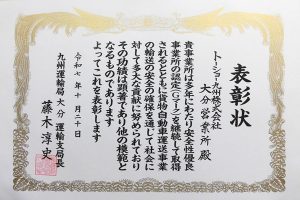 表彰状
トーショー九州株式会社
大分営業所 殿
貴事業所は多年にわたり安全性優良
事業所の認定(Gマーク)を継続して取得
されるとともに貨物自動車運送事業
の輸送の安全の確保を通じて社会に
対して多大な貢献に努められており
その功績は顕著であり他の模範と
なるものであります
よってこれを表彰します
令和七年十月二十日
九州運輸局大分運輸支局長
藤木淳史